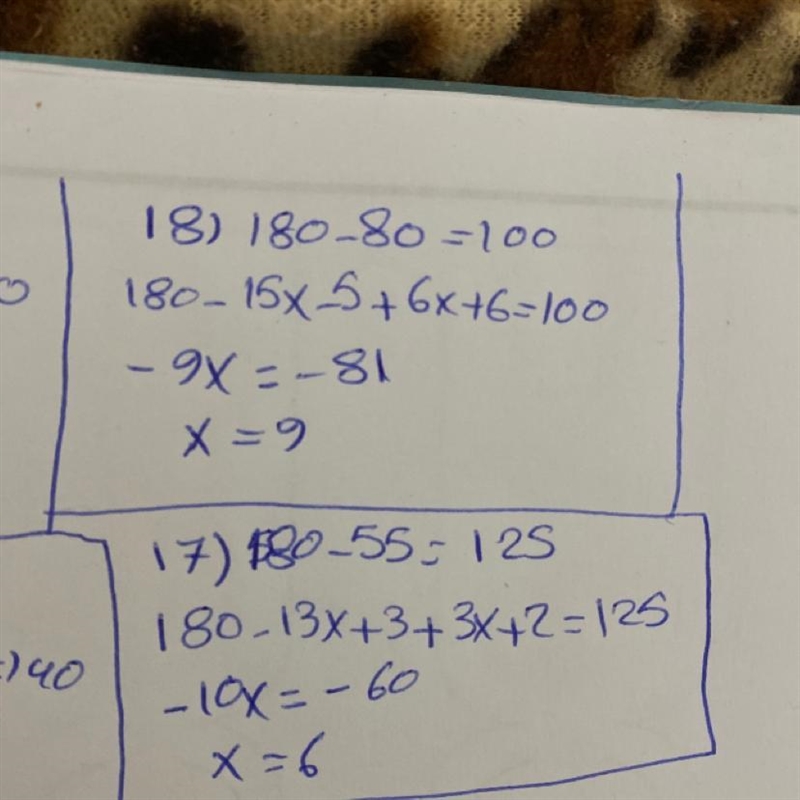 0
18) 180-80=100
180-15x-5+6x+6=100
-9x=-81
x=9
17) 180-55=125
180-13x+3+3x+2=125
-10x=-60
x=6
)40